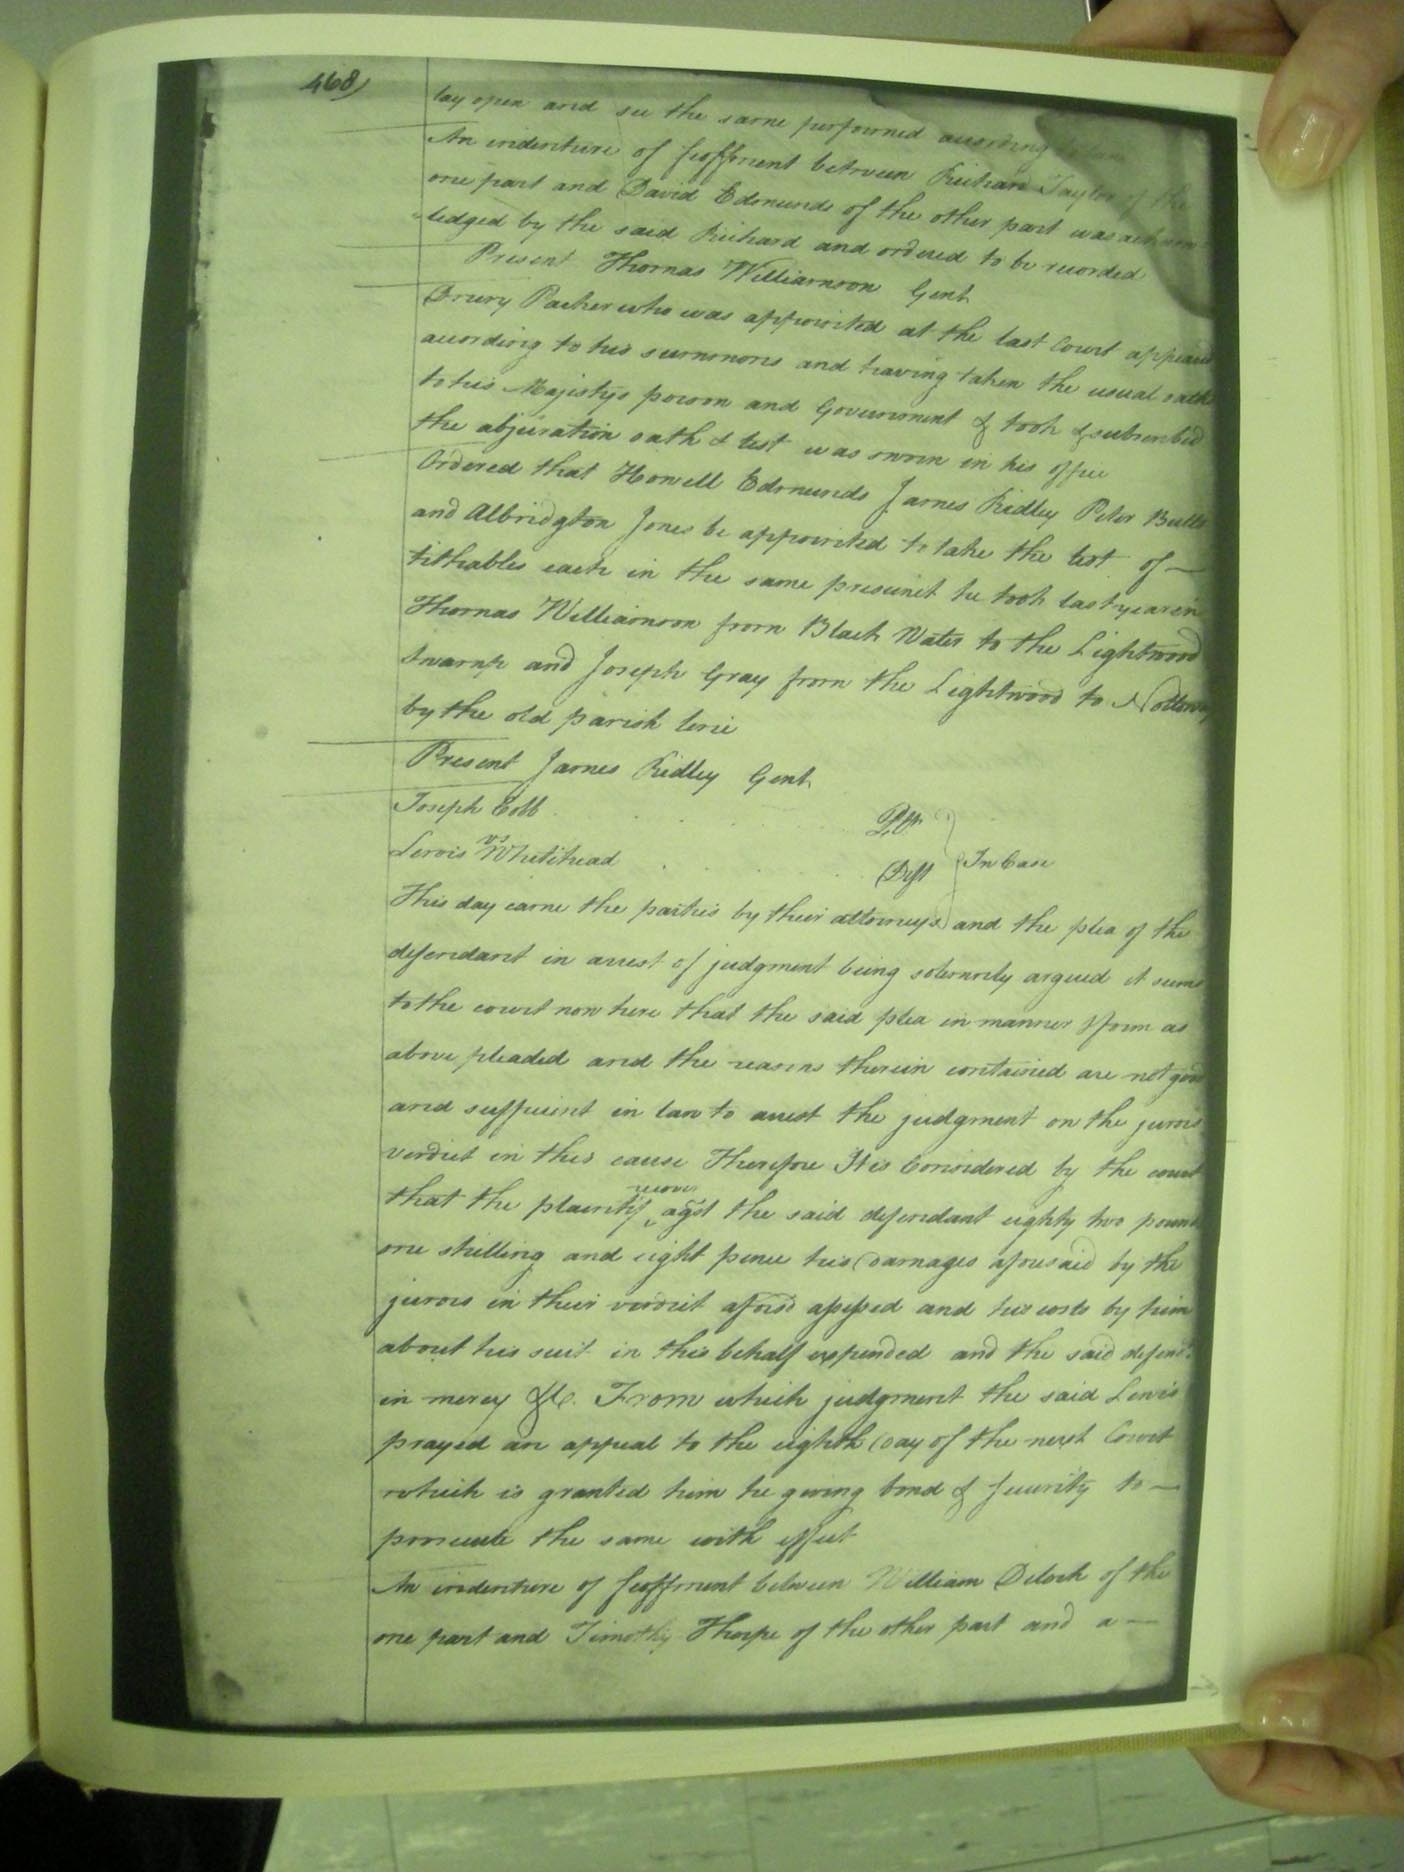 468)
lay open and see the same performed according to law
An indenture of feoffment between Richard Taylor of the
one part and David Edmunds of the other part was acknow=
=ledged by the said Richard and ordered to be recorded
Present Thomas Williamson Gent
Drury Parker who was appointed at the last Court appeared
according to his summons and having taken the usual oath
to his Majestys person and Government & took & subscribed
the abjuration oath & test was sworn in his office
Ordered that Howell Edmunds James Ridley Peter Butts
and Albridgton Jones be appointed to take the list of —
tithables each in the same precinct he took last year in
Thomas Williamson from Black Water to the Lightwood
Swamp and Joseph Gray from the Lightwood to Nottoway
by the old parish line
Present James Ridley Gent
Joseph Cobb Pltf
vs
Lewis Whitehead Deft In Case
This day came the parties by their attorneys and the plea of the
defendant in arrest of judgment being solemnly argued it seems
to the court now here that the said plea in manner & form as
above pleaded and the reasons therein contained are not good
and sufficient in law to arrest the judgment on the jurors
verdict in this cause Therefore It is Considered by the court
that the plaintif recover agst the said defendant eighty two pounds
one shilling and eight pence his damages aforesaid by the
jurors in their verdict aforsd assessed and his costs by him
about his suit in this behalf expended and the said defendt
in mercy &c. From which judgment the said Lewis
prayed an appeal to the eighth day of the next Court
which is granted him he giving bond & security to —
prosecute the same with effect
An indenture of feoffment between William Deloch of the
one part and Timothy Thorpe of the other part and a —